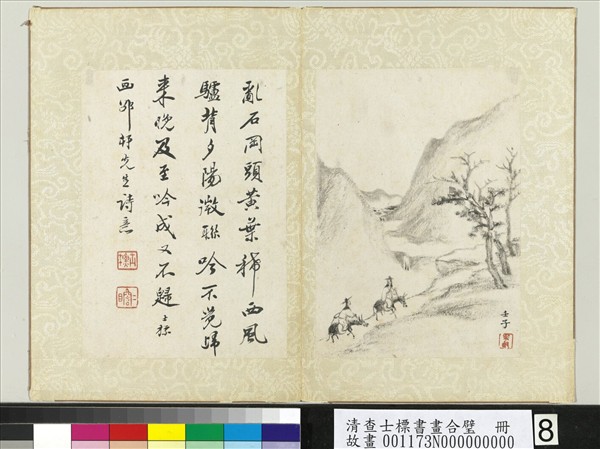 壬子
亂石岡頭黃葉稀西風
驢背夕陽微聯吟不覺歸
來晚及至吟成又不歸士標
先生詩意
清查士標書畫合璧 冊
故畫 001173N000000000
8